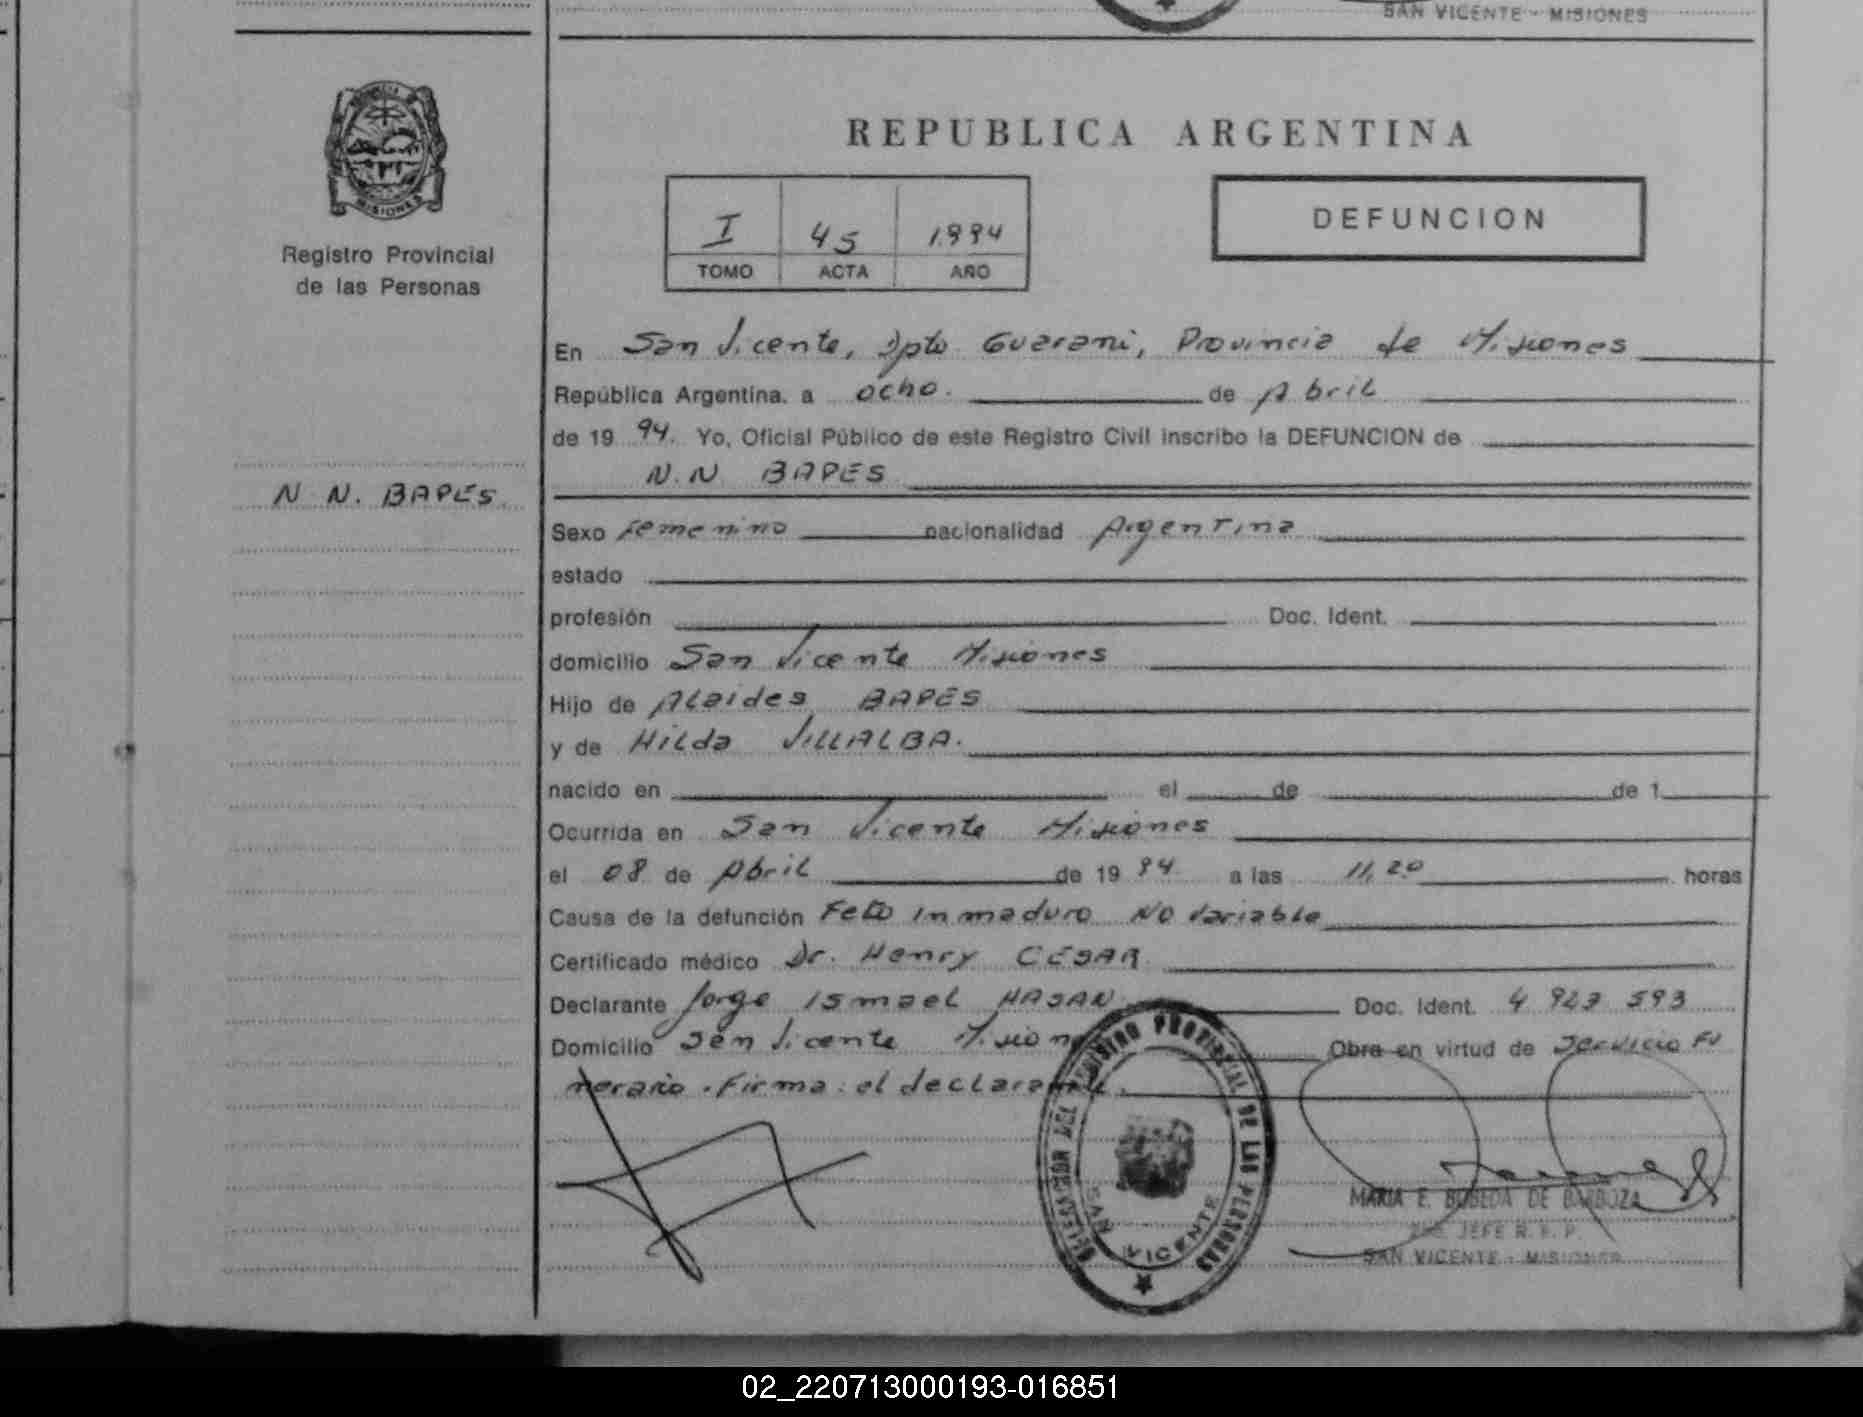 SAN VICENTE - MISIONES
MISIONES
Registro Provincial
de las Personas
N N. BAPES.
REPUBLICA ARGENTINA
I 45 1.994
TOMO ACTA AÑO
DEFUNCION
En San Vicente, Dpto Guarani, Provincia de Misiones
República Argentina, a ocho. de Abril
de 19 94. Yo, Oficial Público de este Registro Civil inscribo la DEFUNCION de
N.N BAPES
Sexo femenino nacionalidad Argentina
estado
profesión Doc. Ident.
domicilio San Vicente Misiones
Hijo de Alaides BAPES
y de Hilda VILLALBA.
nacido en el de de 1
Ocurrida en San Vicente Misiones
el 08 de Abril de 19 94 a las 11,20 horas
Causa de la defunción Feto inmaduro NO variable
Certificado médico Dr. Henry CESAR
Declarante Jorge Ismael HASAN Doc. Ident. 4 923 593
Domicilio San Vicente Misiones Obra en virtud de Servicio Fu
nerario. Firma: el declarante.
DELEGACION DEL REGISTRO PROVINCIAL DE LAS PERSONAS
SAN VICENTE
MARIA E. BOBEDA DE BARBOZA
JEFE R. P. P.
SAN VICENTE - MISIONES
02_220713000193-016851